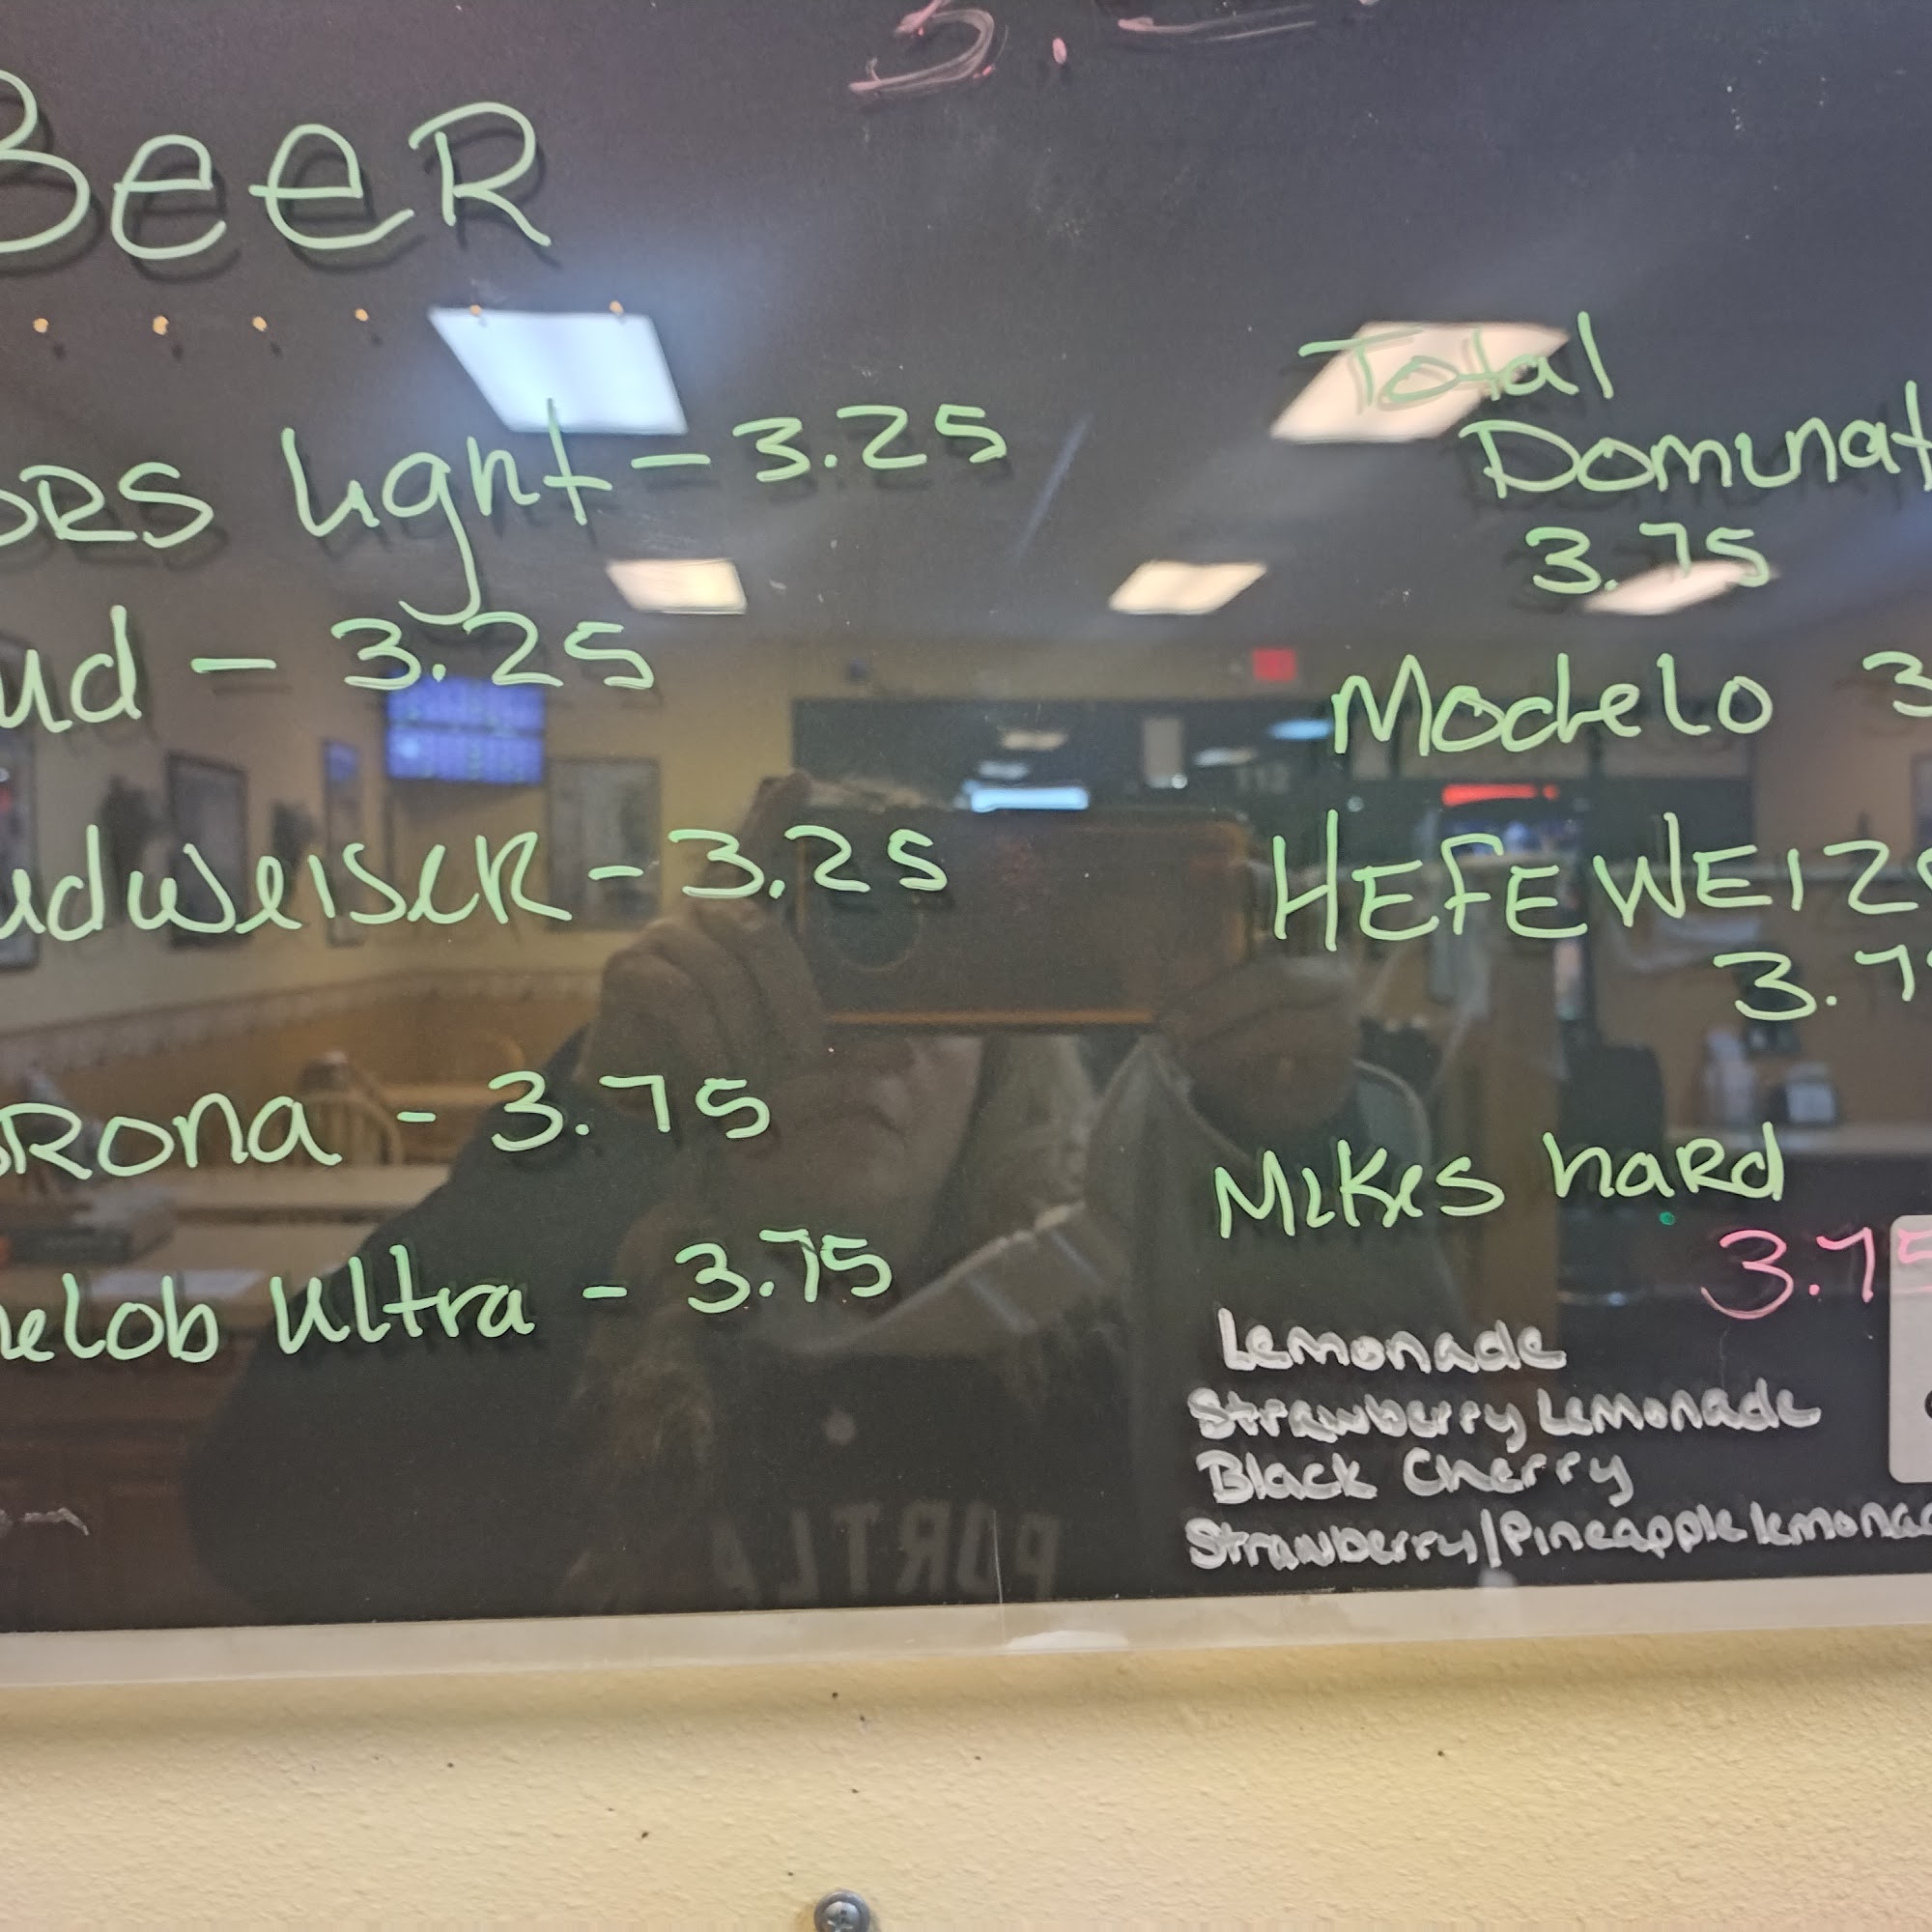 BEER
ORS Light - 3.25
ud - 3.25
udweiser - 3.25
ORONA - 3.75
elob Ultra - 3.75
Total
Dominat
3.75
Modelo 3
HEFEWEIZE
3.7
Mikes hard
3.75
Lemonade
Strawberry Lemonade
Black Cherry
Strawberry/Pineapple lemonad
PORTLA